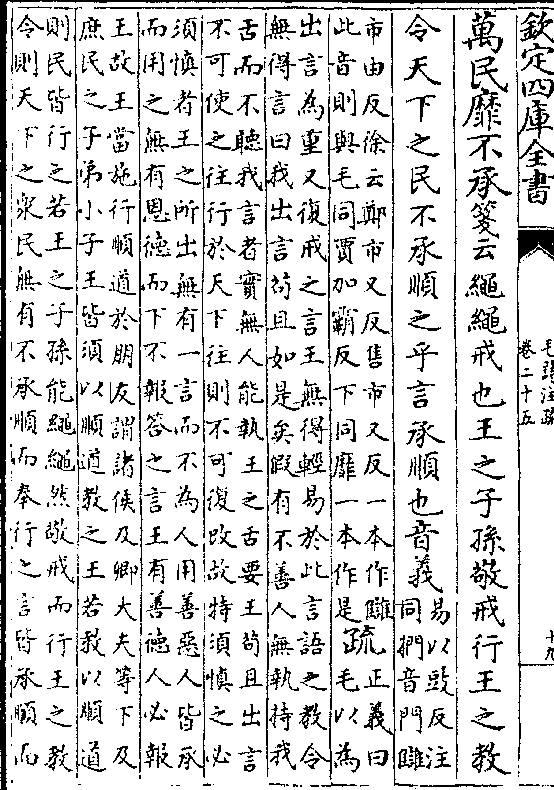 欽定四庫全書
毛詩注疏
卷二十五
十九
萬民靡不承箋云繩繩戒也王之子孫敬戒行王之教
令天下之民不承順之乎言承順也音義
易以豉反注
同捫音門讎
市由反徐云鄭市又反售市又反一本作讎
此音則與毛同賈加霸反下同靡一本作是
疏
正義曰
毛以為
出言為重又復戒之言王無得輕易於此言語之教令
無得言曰我出言苟且如是矣假有不善人無執持我
舌而不聽我言者實無人能執王之舌要王苟且出言
不可使之往行於天下往則不可復改故特須慎之必
須慎者王之所出無有一言而不為人用善惡人皆承
而用之無有恩德而下不報答之言王有善德人必報
王故王當施行順道於朋友謂諸侯及卿大夫等下及
庶民之子弟小子王皆須以順道教之王若教以順道
則民皆行之若王之子孫能繩繩然敬戒而行王之教
令則天下之衆民無有不承順而奉行之言皆承順而